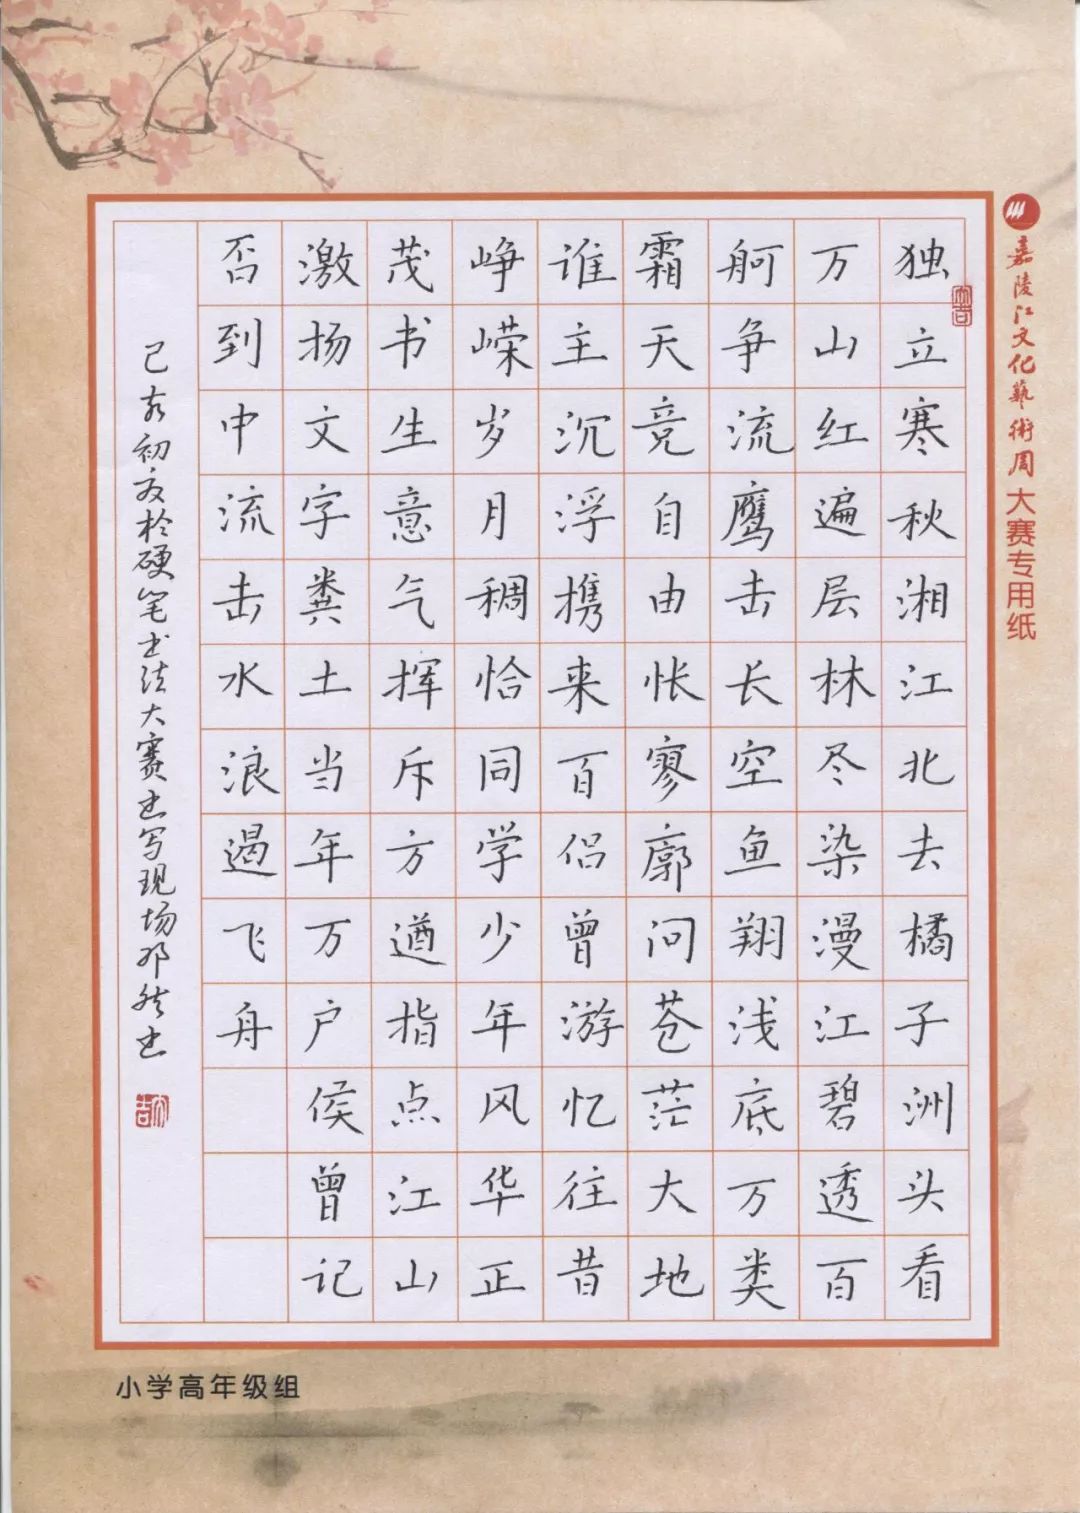 嘉陵江文化艺術周大赛专用纸
独立寒秋湘江北去橘子洲头看
万山红遍层林尽染漫江碧透百
舸争流鹰击长空鱼翔浅底万类
霜天竞自由怅寥廓问苍茫大地
谁主沉浮携来百侣曾游忆往昔
峥嵘岁月稠恰同学少年风华正
茂书生意气挥斥方遒指点江山
激扬文字粪土当年万户侯曾记
否到中流击水浪遏飞舟
己亥初夏於硬笔书法大赛书写现场邓然书
小学高年级组